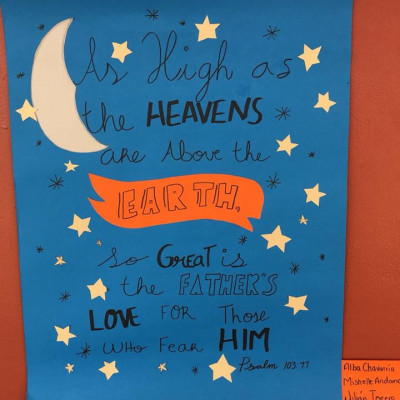 As High as
the HEAVENS
are Above the
EARTH,
So Great is
the FATHER'S
LOVE FOR Those
WHO Fear HIM
Psalm 103:11
Alba Chavarria
Mishelle Andino
Julián